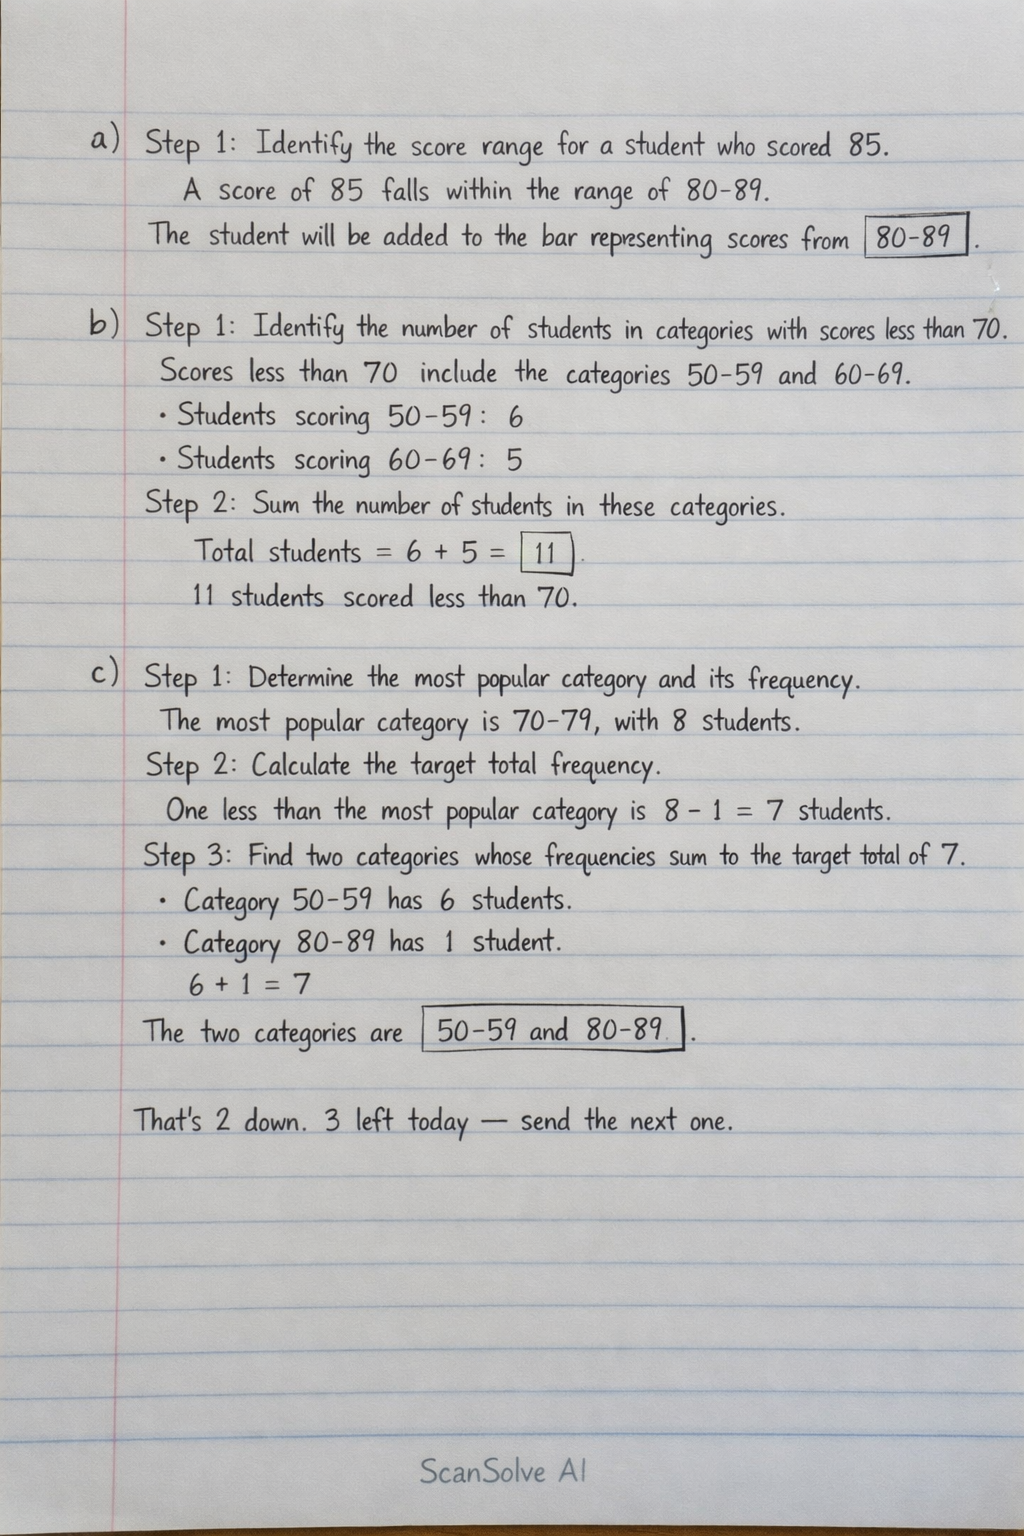 a) Step 1: Identify the score range for a student who scored 85.
A score of 85 falls within the range of 80-89.
The student will be added to the bar representing scores from 80-89.
b) Step 1: Identify the number of students in categories with scores less than 70.
Scores less than 70 include the categories 50-59 and 60-69.
• Students scoring 50-59: 6
• Students scoring 60-69: 5
Step 2: Sum the number of students in these categories.
Total students = 6 + 5 = 11.
11 students scored less than 70.
c) Step 1: Determine the most popular category and its frequency.
The most popular category is 70-79, with 8 students.
Step 2: Calculate the target total frequency.
One less than the most popular category is 8 - 1 = 7 students.
Step 3: Find two categories whose frequencies sum to the target total of 7.
• Category 50-59 has 6 students.
• Category 80-89 has 1 student.
6 + 1 = 7
The two categories are 50-59 and 80-89.
That's 2 down. 3 left today — send the next one.
ScanSolve AI